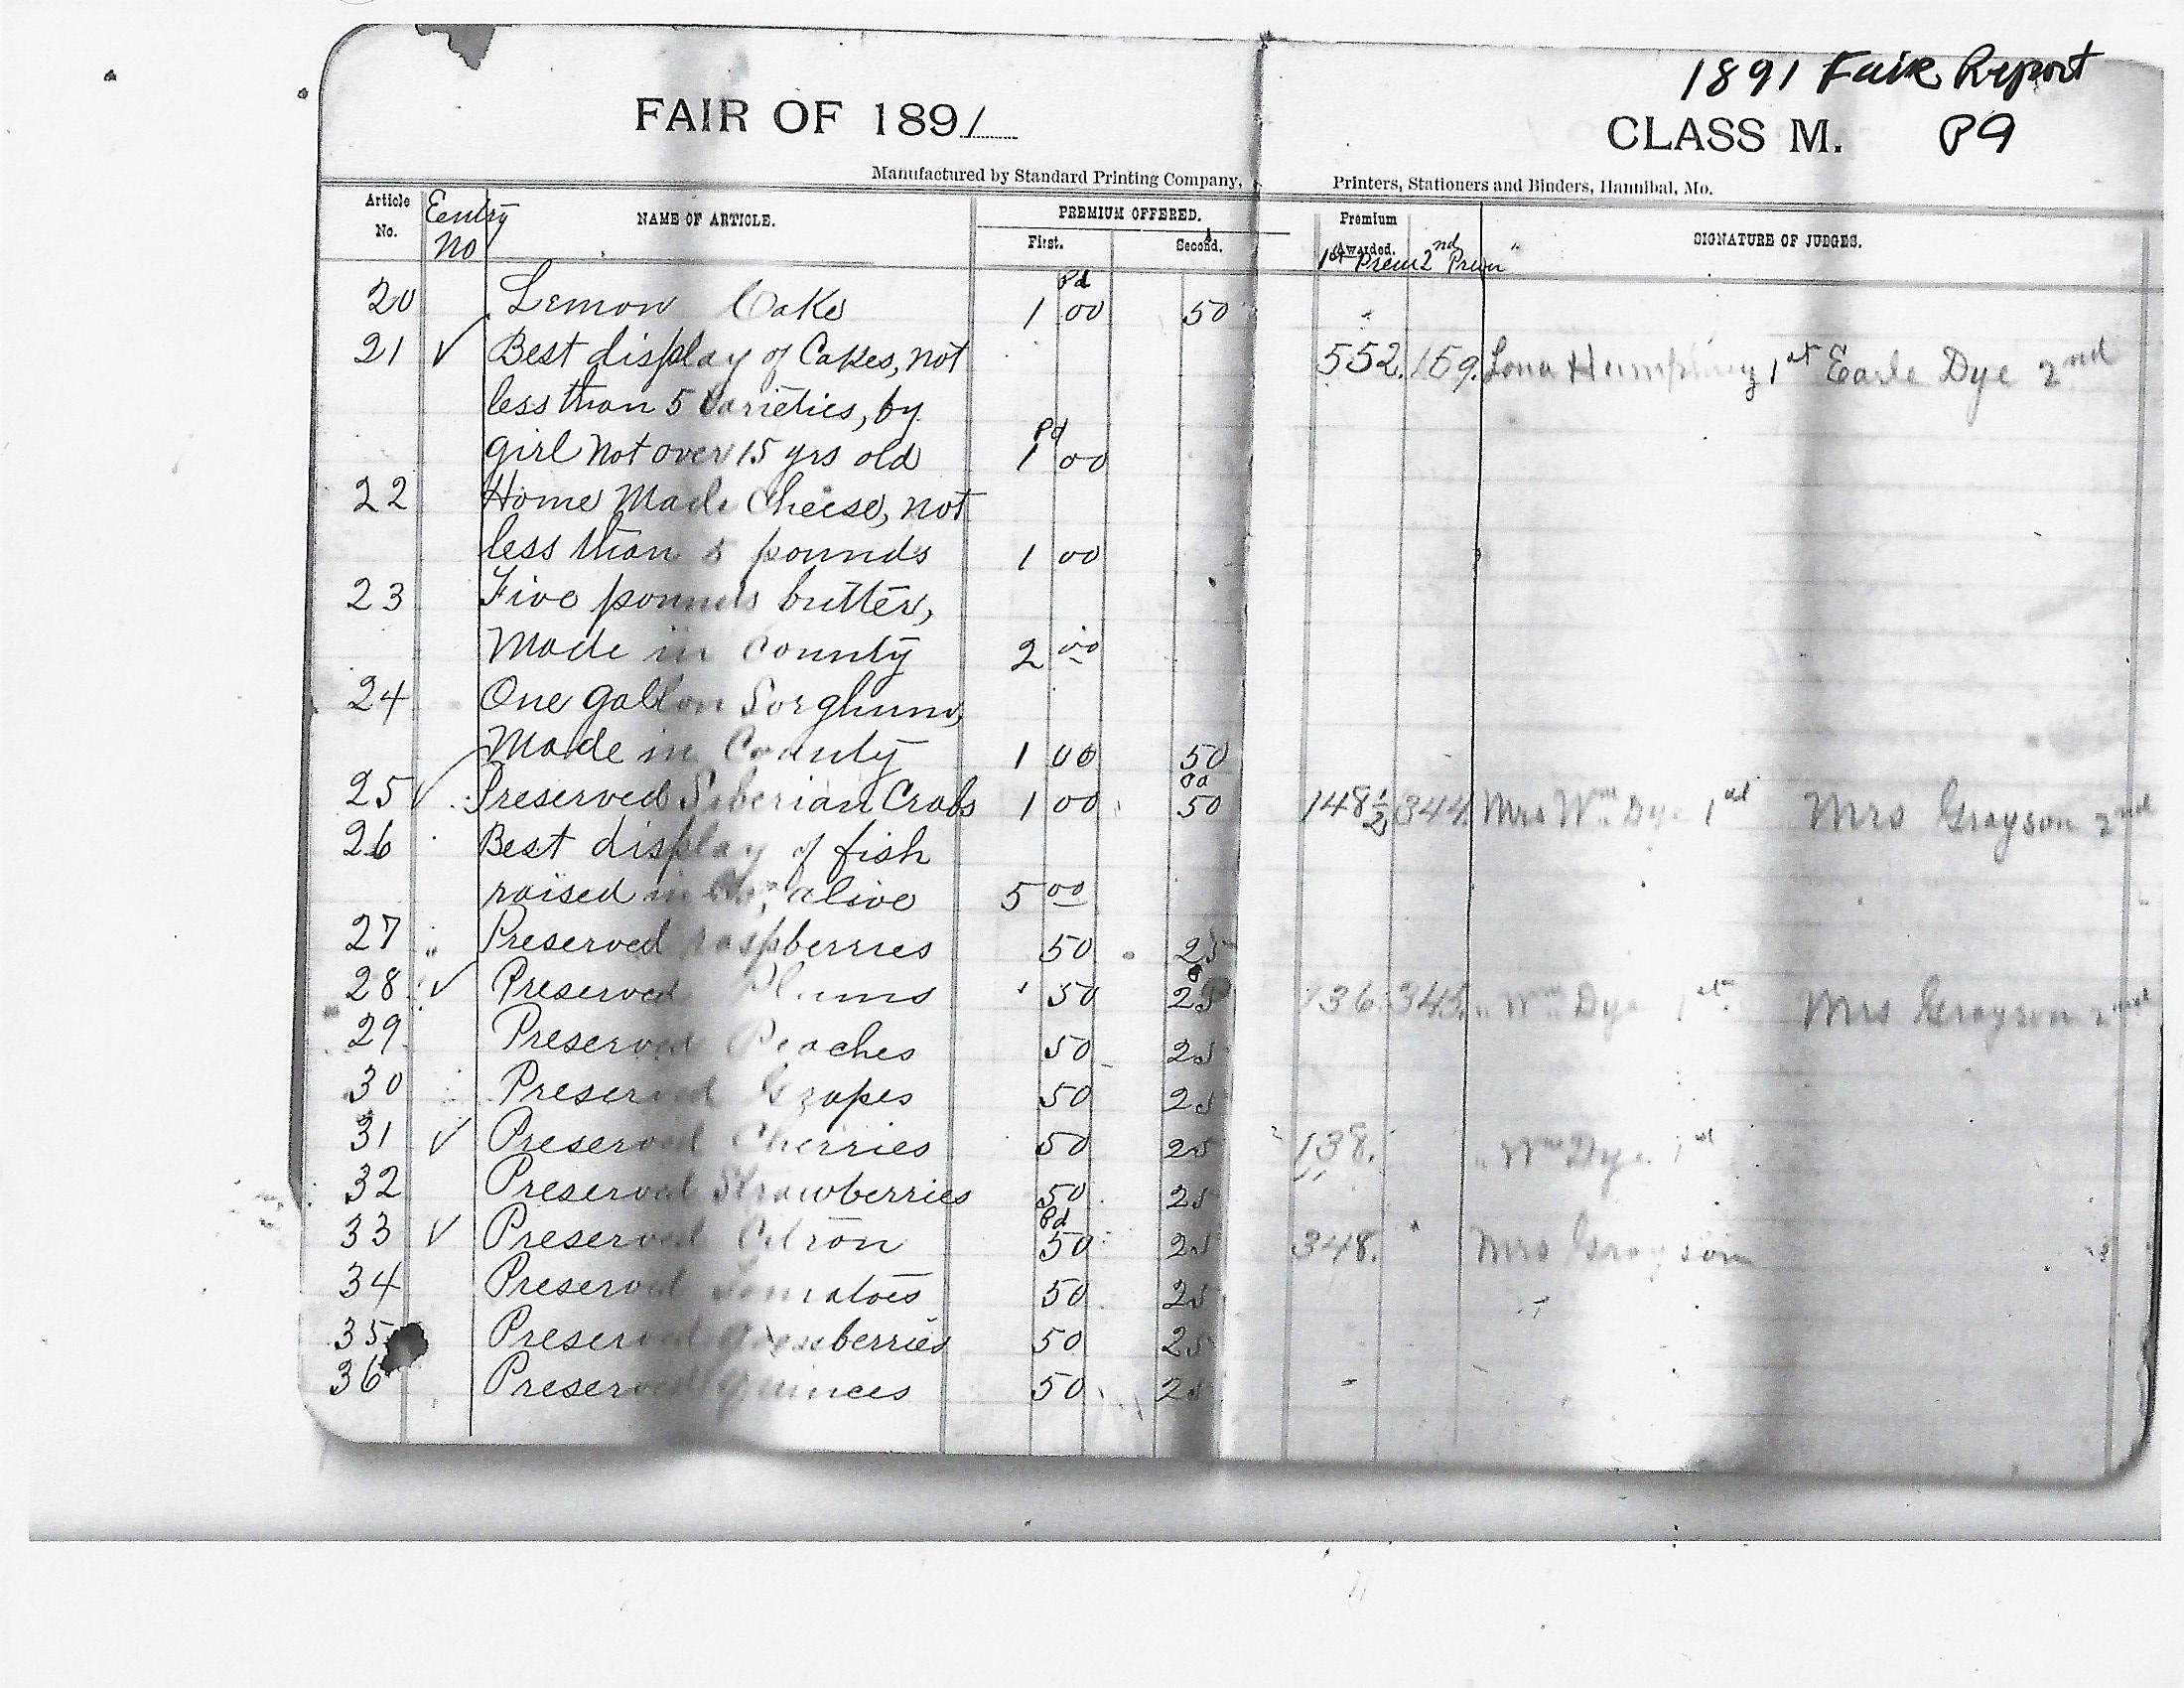 1891 Fair Report
FAIR OF 1891
CLASS M. P9
Manufactured by Standard Printing Company, Printers, Stationers and Binders, Hannibal, Mo.
Article No. Eentry No NAME OF ARTICLE. PREMIUM OFFERED. First. Second. Premium Awarded. 1st Prem 2nd Prem SIGNATURE OF JUDGES.
Pd
20 Lemon Cake 1 00 50
21 ✓ Best display of Cakes, not 552. 159. Lona Humphrey 1st Earle Dye 2nd
less than 5 varieties, by
Pd
girl not over 15 yrs old 1 00
22 Home Made Cheese, not
less than 5 pounds 1 00
23 Five pounds butter,
Made in County 2 00
24 One gallon Sorghum,
Made in County 1 00 50
25 ✓ Preserved Siberian Crabs 1 00 50 148½ 344. Mrs Wm Dye 1st Mrs Grayson 2nd
26 Best display of fish
raised in Co, alive 5 00
27 Preserved raspberries 50 25
28 ✓ Preserved Plums 50 25 136. 345. " Wm Dye 1st Mrs Grayson 2nd
29 Preserved Peaches 50 25
30 Preserved Grapes 50 25
31 ✓ Preserved Cherries 50 25 138. " Wm Dye 1st
32 Preserved Strawberries 50 25
Pd
33 ✓ Preserved Citron 50 25 348. Mrs Grayson
34 Preserved Tomatoes 50 25
35 Preserved Gooseberries 50 25
36 Preserved Quinces 50 25